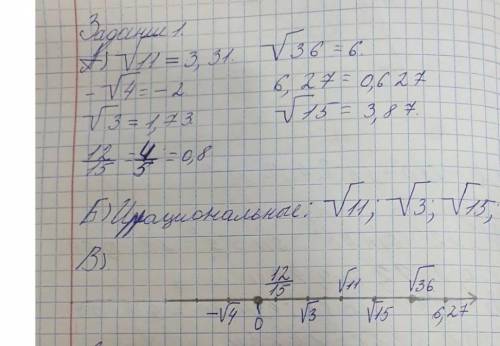 Задание 1.
А) √11 = 3,31. √36 = 6.
-√4 = -2 6,27 = 0,627
√3 = 1,73. √15 = 3,87.
12/15 = 4/5 = 0,8
Б) Ирациональные: √11; √3; √15;
В)
-√4 0 12/15 √3 √11 √15 √36 6,27